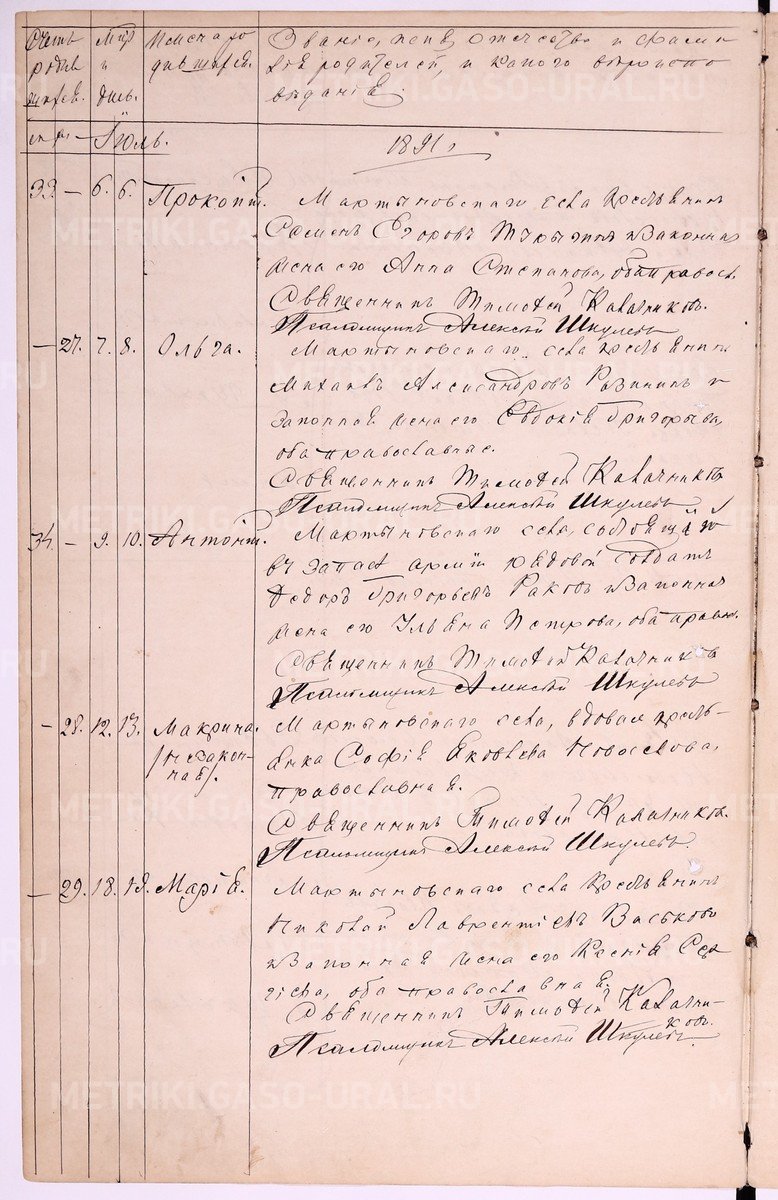 Счетъ родив шихся.
Мѣс и день.
Имена ро дившихся.
Званіе, имя, отчество и фами
лія родителей, и какого вѣроиспо
вѣданія.
Іюль.
1891 г.
33 — 6. 6. Прокопій. Мартыновскаго села крестьянинъ
Семенъ Егоровъ и законная
жена его Анна Степанова, оба правосл.
Священникъ Тимофей Калачниковъ.
Псаломщикъ Алексѣй Шкулевъ
— 27. 7. 8. Ольга. Мартыновскаго села крестьянинъ
Михаилъ Александровъ и
законная жена его Евдокія Григорьева,
оба православные.
Священникъ Тимофей Калачниковъ
Псаломщикъ Алексѣй Шкулевъ
34. — 9. 10. Антоній. Мартыновскаго села, состоящій
въ запасѣ арміи рядовой солдатъ
Ѳедоръ Григорьевъ Раковъ и законная
жена его Ульяна Петрова, оба правос.
Священникъ Тимофей Калачниковъ
Псаломщикъ Алексѣй Шкулевъ
— 28. 12. 13. Макрина. Мартыновскаго села, вдовая кресть-
/незакон- янка Софія Яковлева Новоселова,
ная/. православная.
Священникъ Тимофей Калачниковъ.
Псаломщикъ Алексѣй Шкулевъ.
— 29. 18. 19. Марія. Мартыновскаго села крестьянинъ
Николай Лаврентіевъ Васьковъ
и законная жена его Ксенія Сер
гіева, оба православная.
Священникъ Тимофей Калачни-
ковъ.
Псаломщикъ Алексѣй Шкулевъ.
METRIKI.GASO-URAL.RU